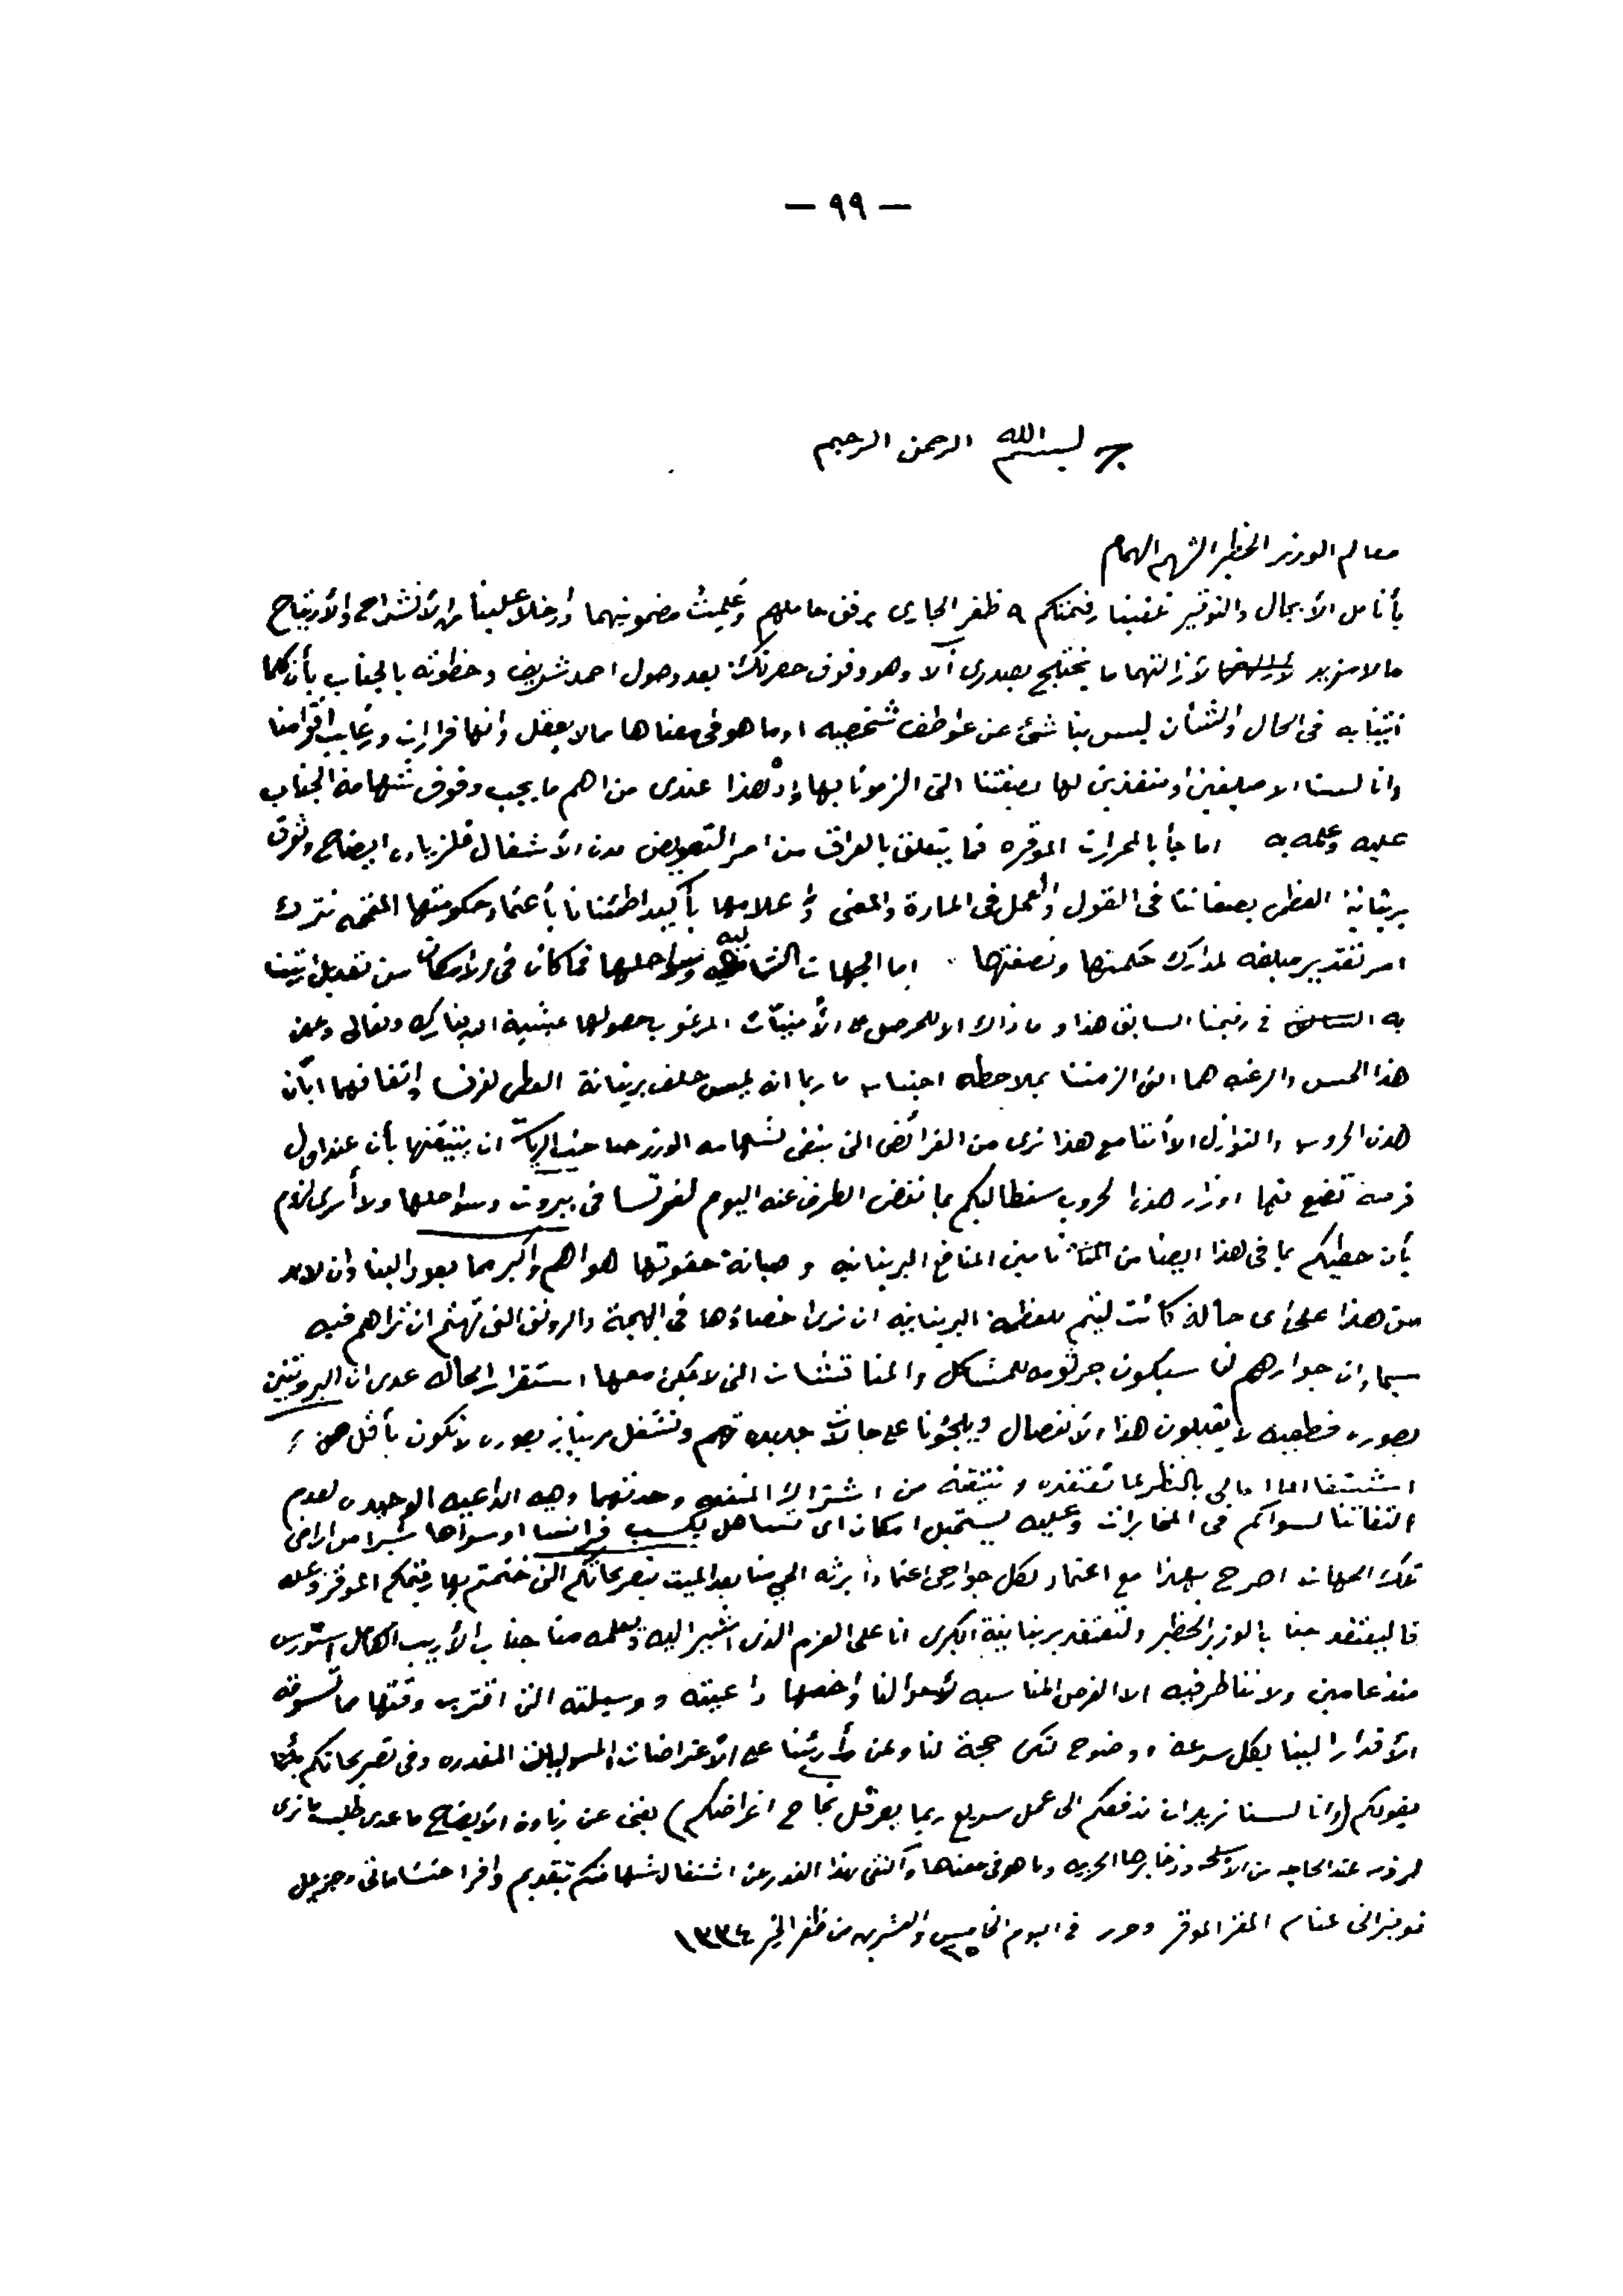 — ٩٩ —
بسم الله الرحمن الرحيم
معالم الوزير الخطير الشهم الهمام
بأنامل الأجلال والتوقير تلقينا رقيمتكم ٩ ظفر الجاري برفق حاملهم وعلمت مضمونيهما وأدخلا علينا من الأنشراح والأرتياح
ما لا مزيد لأزالتهما ما يختلج بصدري ألا وهو وقوف حضرتك بعد وصول احمد شريف وحظوته بالجناب بأن كلما
أتينا به في الحال والشأن ليس بناشئ عن عواطف شخصيه او ما هو في معناها مما لا يعقل وانها قرارات ورغايب أقوامنا
وانا لسنا الا مبلغين ومنفذين لها بصفتنا التي الزمونا بها إذ هذا عندي من اهم ما يجب وقوف شهامة الجناب
عليه وعلمه به اما جاء بالمحررات الموقره فيما يتعلق بالعراق من امر التعويض مدة الأشغال فلزيادة ايضاح وثوق
بريتانية العظمى بصفاتنا في القول والعمل في المادة والمعنى وأعلامها بأكيد اطمئناننا بأعتماد حكومتها المفخمه نترك
امر تقدير مبلغه لمدارك حكمتها ونصفتها اما الجهات الشاميه وسواحلها فما كان في الأمكان من تعديل اتينا
به في رقيمنا السابق هذا وما ذاك الا للحرص على الأمنيات المرغوب حصولها بمشيئة الله تبارك وتعالى وعن
هذا الحس والرغبه هما التي الزمتنا بملاحظة اجتناب ما ربما انه يمس حلف بريتانية العظمى لفرنسا واتفاقهما ابان
هذه الحروب والنوازل الا أننا مع هذا نرى من الفرائض التي ينبغي لشهامة الوزير صاحب الرياسة ان يتيقنها بأن عند اول
فرصة تضع فيها اوزار هذه الحروب سنطالبكم بما نغض الطرف عنه اليوم لفرنسا في بيروت وسواحلها ولا أرى لزوم
بأن احطيكم بما في هذا ايضا من تأمين المنافع البريتانيه وصيانة حقوقها هو اهم وأكبر مما يعود الينا وان لا بد
من هذا على أي حالة كانت ليتم للعظمة البريتانيه ان ترى اخصاءها في البهجة والرونق التي تهتم ان تراهم فيه
سيما وان جوارهم لنا سيكون جرثومه للمشاكل والمناقشات التي لا يمكن معها استقرار الحاله عدى ان البيروتيين
بصورة قطعيه لا يقبلون هذا الأنفصال ويلجئونا على حالات جديده تهم وتشغل بريتانيه بصوره لا تكون بأقل من
اشتغالها الحالي بالنظر لما نعتقده ونتيقنه من اشتراك المنفعه وحدتهما وهي الداعيه الوحيده لعدم
التفاتنا لسواكم في المخابرات وعليه يستحيل امكان اي تساهل يكسب فرانسا او سواها شبرا من اراضي
تلك الجهات اصرح بهذا مع اعتمادي بكل جوارحي اعتمادا يرثه الحي منا بعد الميت بتصريحاتكم التي ختمتم بها رقيمكم الموقر وعليه
فاليعتقد جناب الوزير الخطير ولتعتقد بريتانية الكبرى انا على العزم الذي اشير اليه ويعلمه منا جناب الأريب الكامل استورس
منذ عامين ولا ننتظر فيه الا الفرص المناسبه لأحوالنا وأخصها داعيته ووسيلته التي اقترب وقتها مما تسوقه
الأقدار الينا بكل سرعة ووضوح لتكن حجة لنا ولمن رأى رأينا على الأعتراضات والمسؤليات المقدره وفي تصريحاتكم
بقولكم (وانا لسنا نريد ان ندفعكم الى عمل سريع ربما يعرقل نجاح اغراضكم) يغني عن زيادة الأيضاح ما عدى طلب ما نرى
لزومه عند الحاجه من الأسلحه وذخايرها الحربيه وما هو في معناها وأكتفي بهذا القدر عن اشتغال شهامتكم بتقديم وافر احتشاماتي وجزيل
توقيراتي لمقام المفخم الموقر وحرر في اليوم الخامس والعشرين من ظفر الخير ١٣٣٤
٢٥